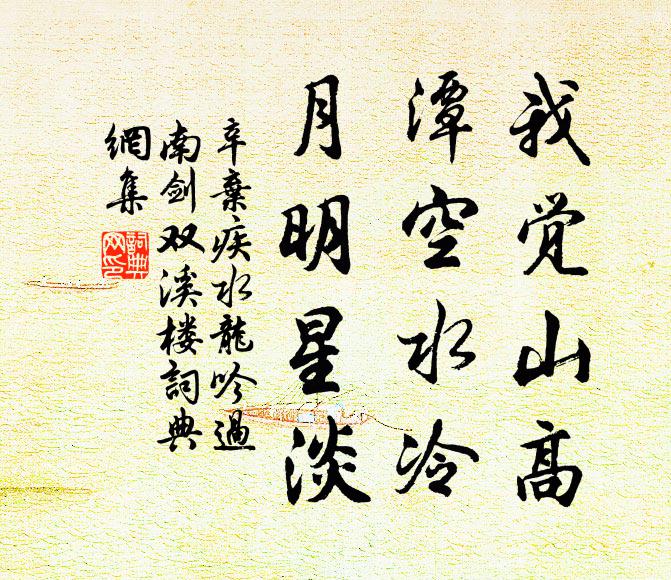 我觉山高
潭空水冷
月明星淡
辛棄疾水龍吟過
南剑双溪楼詞典
網集
詞典
网印